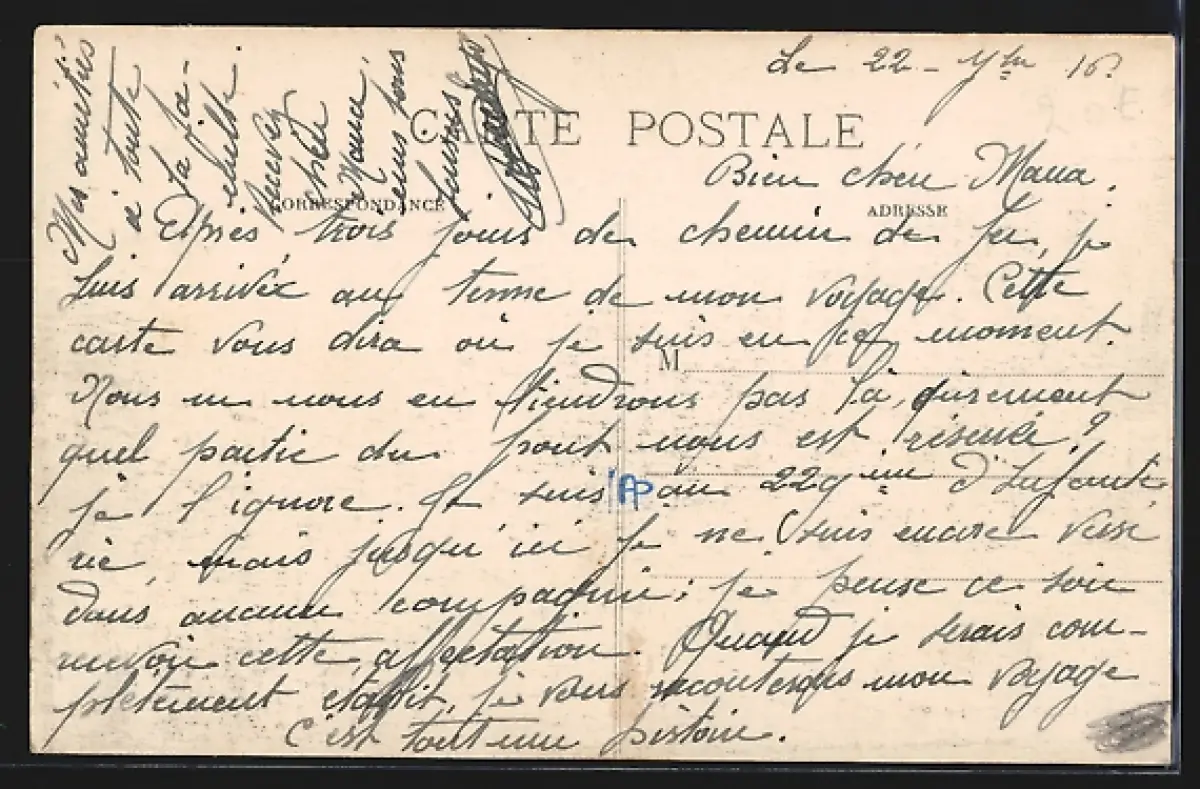 Le 22 - 7bre 16.
CARTE POSTALE
Bien chère Mana,
CORRESPONDANCE
ADRESSE
Après trois jours de chemin de fer, je
suis arrivée au terme de mon voyage. Cette
carte vous dira où je suis en ce moment.
Nous ne nous en tiendrons pas là, surement
M
quel partie du front nous est réservé?
je l'ignore. Je suis au 229ième d'Infante
AP
rie, mais jusqu'ici je ne suis encore versé
dans aucune compagnie; je pense ce soir
recevoir cette affectation. Quand je serais com-
plètement établit, je vous raconterais mon voyage
c'est toute une histoire.
Mes amitiés
à toute
la fa-
mille.
Recevez
chère
Mana,
mes bons